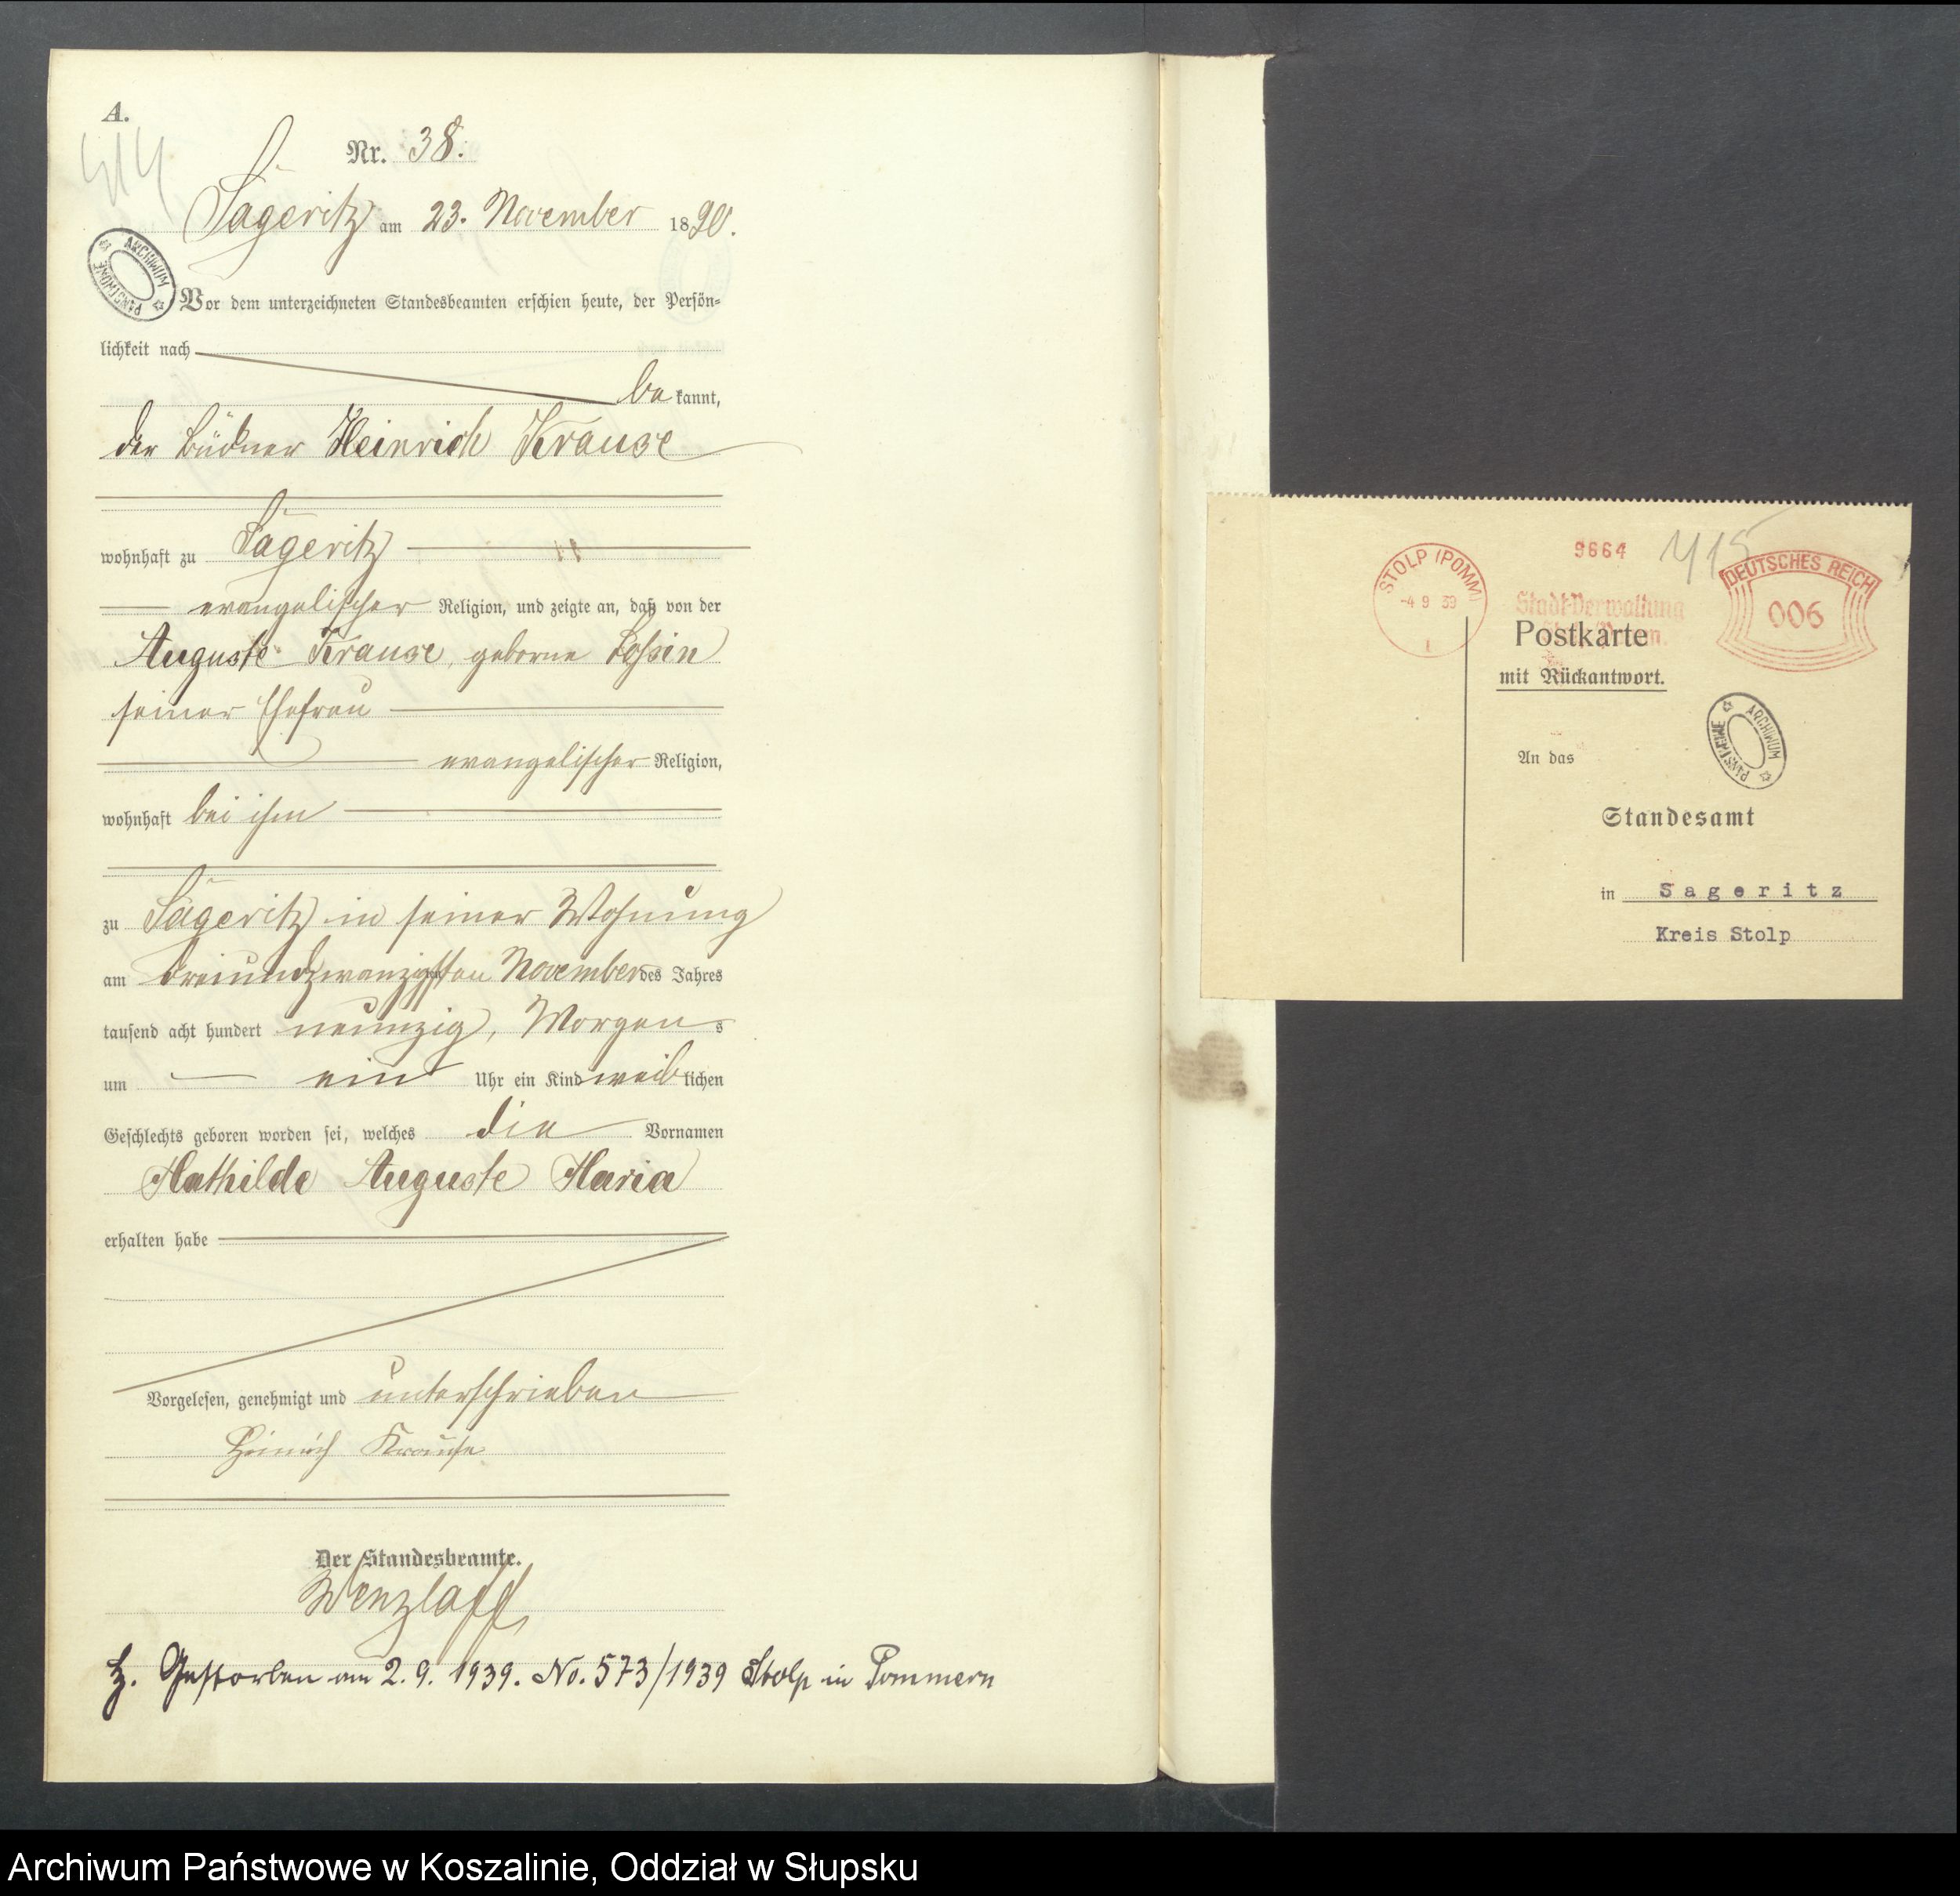 A.
414
Nr. 38.
Sageritz am 23. November 1890.
ARCHIWUM PAŃSTWOWE
Vor dem unterzeichneten Standesbeamten erschien heute, der Persön-
lichkeit nach
be kannt,
der Büdner Heinrich Krause
wohnhaft zu Sageritz
evangelischer Religion, und zeigte an, daß von der
Auguste Krause, geborne Lossin
seiner Ehefrau
evangelischer Religion,
wohnhaft bei ihm
zu Sageritz in seiner Wohnung
am dreiundzwanzigsten November des Jahres
tausend acht hundert neunzig, Morgens
um ein Uhr ein Kind weiblichen
Geschlechts geboren worden sei, welches die Vornamen
Mathilde Auguste Maria
erhalten habe
Vorgelesen, genehmigt und unterschrieben
Heinrich Krause
Der Standesbeamte.
Wenzlaff
H. Gestorben am 2.9.1939. No. 573/1939 Stolp in Pommern
9664
415
STOLP (POMM)
-4 9 39
1
Stadt-Verwaltung
DEUTSCHES REICH
006
Postkarte
mit Rückantwort.
ARCHIWUM PAŃSTWOWE
An das
Standesamt
in Sageritz
Kreis Stolp
Archiwum Państwowe w Koszalinie, Oddział w Słupsku